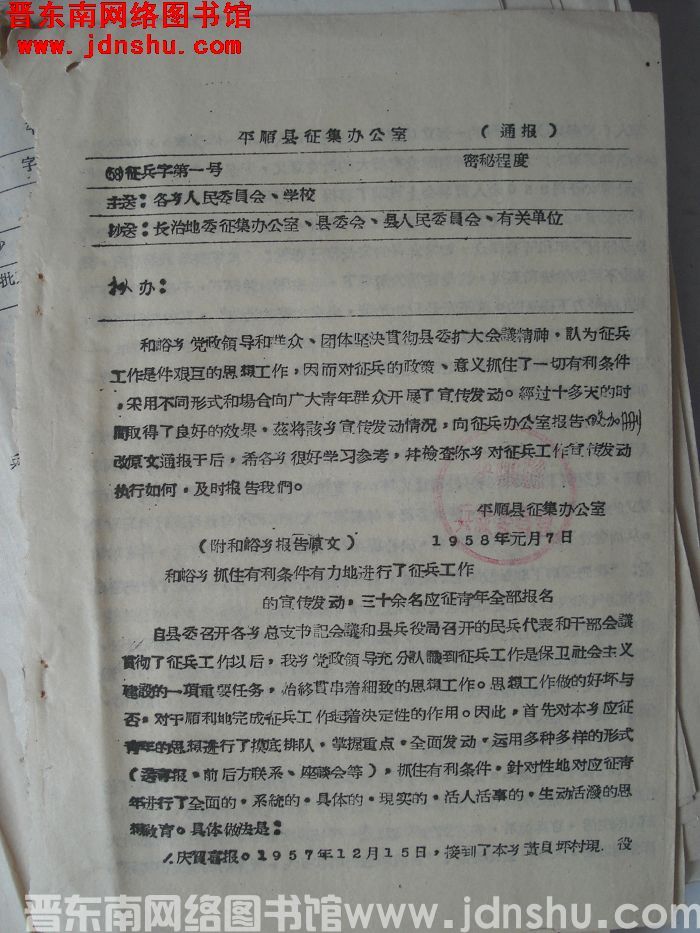 晋东南网络图书馆
www.jdnshu.com
平顺县征集办公室 （通报）
(58)征兵字第一号 密秘程度
主送：各乡人民委员会、学校
抄送：长治地委征集办公室、县委会、县人民委员会、有关单位
拟办：
和峪乡党政领导和群众、团体坚决贯彻县委扩大会議精神，認为征兵
工作是件艰巨的思想工作，因而对征兵的政策、意义抓住了一切有利条件
，采用不同形式和場合向广大青年群众开展了宣传发动。經过十多天的时
間取得了良好的效果。茲将該乡宣传发动情况，向征兵办公室报告略加刪
改原文通报于后，希各乡很好学习参考，幷检查你乡对征兵工作宣传发动
执行如何，及时报告我們。
平顺县征集办公室
（附和峪乡报告原文） 1958年元月7日
和峪乡抓住有利条件有力地进行了征兵工作
的宣传发动，三十余名应征青年全部报名
自县委召开各乡总支书記会議和县兵役局召开的民兵代表和干部会議
貫彻了征兵工作以后，我乡党政领导充分認識到征兵工作是保卫社会主义
建設的一項重要任务，始終貫串着細致的思想工作。思想工作做的好坏与
否，对于順利地完成征兵工作起着决定性的作用。因此，首先对本乡应征
青年的思想进行了摸底排队，掌握重点，全面发动，运用多种多样的形式
（送喜报，前后方联系、座談会等），抓住有利条件，針对性地对应征青
年进行了全面的，系統的，具体的，現实的，活人活事的，生动活潑的思
想教育。具体做法是：
1.庆賀喜报。1957年12月15日，接到了本乡黃貝坪村現役
晋东南网络图书馆www.jdnshu.com